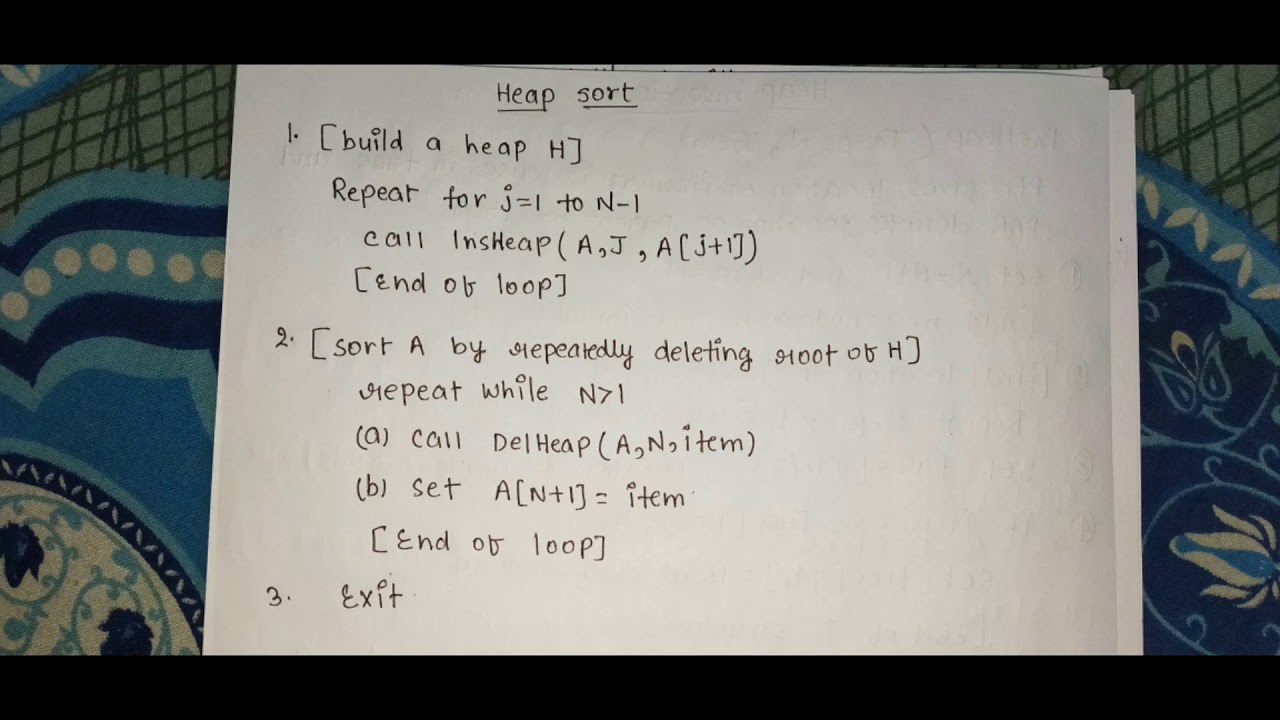 Heap sort
1. [build a heap H]
Repeat for j=1 to N-1
call InsHeap(A,J,A[j+1])
[End of loop]
2. [sort A by repeatedly deleting root of H]
repeat while N>1
(a) call DelHeap(A,N,item)
(b) set A[N+1] = item
[End of loop]
3. Exit